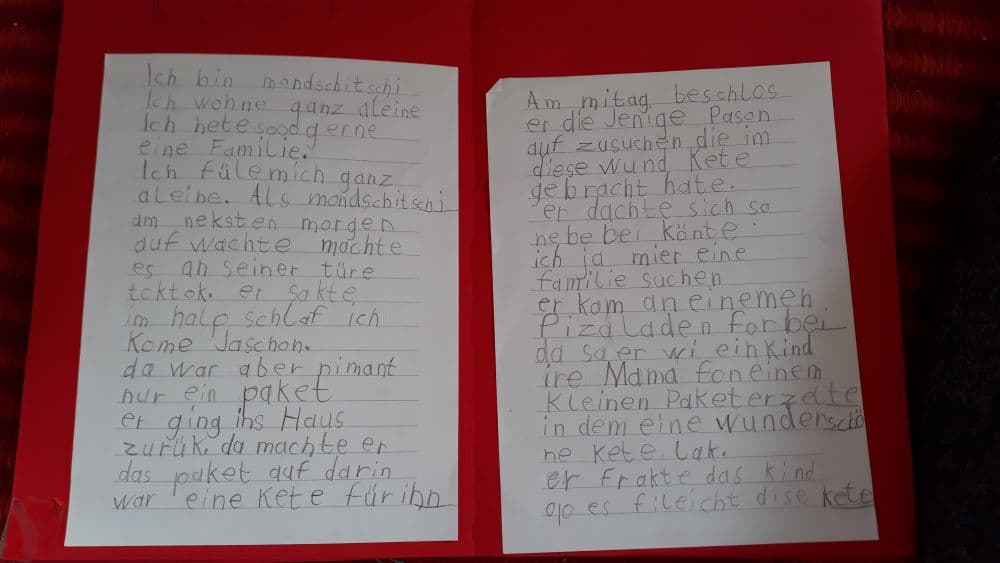 Ich bin mondschitschi
Ich wohne ganz aleine
Ich hete sood gerne
eine Familie.
Ich füle mich ganz
aleine. Als mondschitschi
am neksten morgen
auf wachte machte
es an seiner türe
tcktok. er sakte
im halp schlaf ich
kome Jaschon.
da war aber nimant
nur ein paket
er ging ins Haus
zurük. da machte er
das paket auf darin
war eine Kete für ihn
Am mitag beschlos
er die Jenige Pason
auf zusuchen die im
diese wund Kete
gebracht hate.
er dachte sich so
nebe bei könte
ich ja mier eine
familie suchen
er kam an einemen
Pizaladen forbei
da sa er wi ein Kind
ire Mama fon einem
kleinen Paket erzelte
in dem eine wunderschö
ne kete lak.
er frakte das kind
op es fileicht dise kete